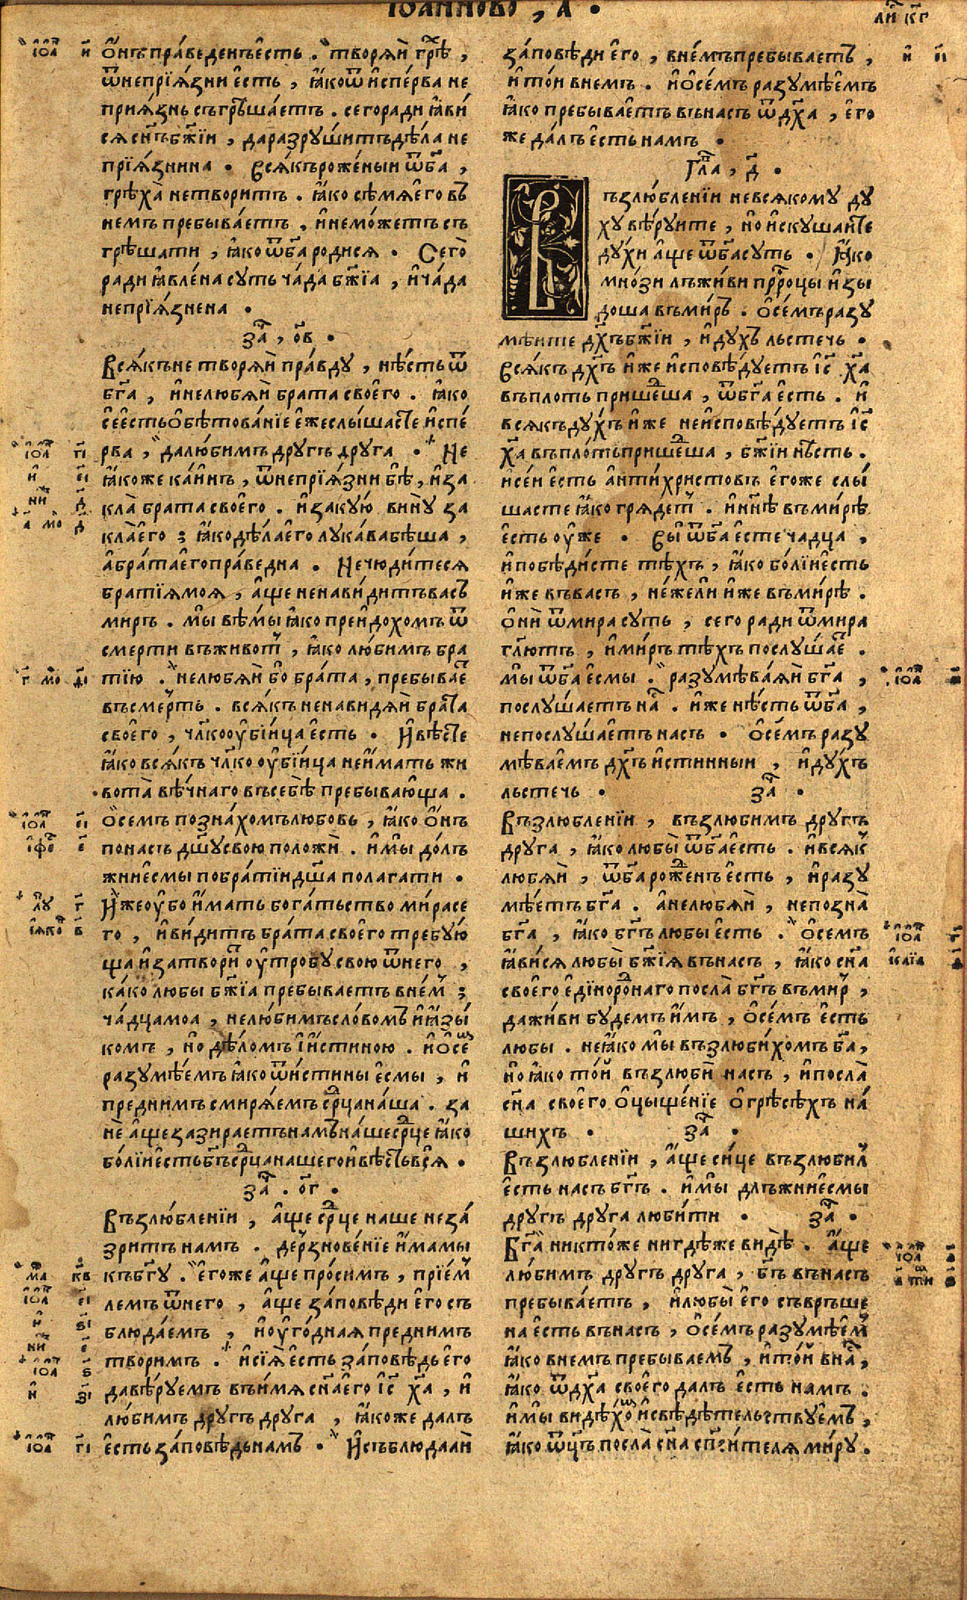 їѡанново , а҃ •
ли҃ кг҃
ѻ҆нъ пра́веденъ є҆сть . творѧ́й грѣ́хъ ,
ѿнепрїѧ́зни є҆сть , ꙗ҆́коѿ и҆спе́рва не
прїѧ́знь съгрѣша́етъ . сегоради ꙗ҆ви́
сѧ сн҃ъ бж҃їи , даразрꙋши́тъ дѣ́ла не
прїѧ́знина • Всѧ́къ роже́ныи ѿ бг҃а ,
грѣха̀ нетвори́тъ . ꙗ҆́ко сѣ́мѧ є҆го въ
не́мъ пребыва́етъ . и҆ немо́жетъ съ
грѣшати , ꙗ҆́ко ѿ бг҃а роди́сѧ • Сего̀
ради ꙗ҆вле́на сꙋть ча́да бж҃їа , и҆ ча́да
непрїѧ́знена •
за҃ , ѻв •
Всѧ́къ не творѧ́й пра́вдꙋ , нѣ́сть ѿ
бг҃а , и҆ нелюбѧ́й бра́та свое́го . ꙗ҆́ко
се є҆́сть ѻ҆бѣтова́нїе є҆́же слы́шасте и҆спе́
рва , далю́бимъ дрꙋ́гъ дрꙋ́га • Не
ꙗ҆́коже ка́инъ , ѿнепрїѧ́зни бѣ̀ , и҆ за
кла̀ бра́та свое́го . и҆ закꙋ́ю винꙋ̀ за
кла̀ є҆го ; ꙗ҆́ко дѣла̀ є҆го лꙋка́ва бѣ́ша ,
а҆ бра́та є҆го пра́ведна • Нечю́дитесѧ
бра́тїѧ моѧ̀ , а҆́ще ненави́дитъ васъ
миръ . мы̀ вѣ́мы ꙗ҆́ко прейдо́хомъ ѿ
сме́рти въ живо́тъ , ꙗ҆́ко лю́бимъ бра
тїю . нелюбѧ́й бо бра́та , пребыва́е
въ сме́рть . всѧ́къ ненави́дѧй бра́та
своего , чл҃коѹбі́йца є҆сть • И҆ вѣ́сте
ꙗ҆́ко всѧ́къ чл҃коѹбі́йца неи́мать жи
вота̀ вѣ́чнаго въ себѣ̀ пребыва́юща .
ѻ҆ семъ позна́хомъ любо́вь , ꙗ҆́ко ѻ҆́нъ
по на́съ дш҃ꙋ свою положѝ . и҆ мы̀ до́лъ
жни є҆смы̀ по бра́тїи дш҃а полага́ти •
И҆́же ѹ҆бо и҆́мать бога́тьство ми́ра се
го , и҆ ви́дитъ бра́та свое́го требꙋ́ю
ща и҆ затвори́тъ ѹ҆тро́бꙋ свою ѿ него ,
ка́ко любы̀ бж҃їа пребыва́етъ в не́мъ ;
ча́дца моа , не лю́бимъ сло́вомъ и҆ ꙗ҆зы́
комъ , но дѣ́ломъ и҆ и҆́стиною . и҆ ѻ҆ се
разꙋмѣ́емъ ꙗ҆́ко ѿ и҆́стины є҆смы̀ , и҆
пред нимъ смирѧ́емъ срдца̀ на́ша . за
не а҆́ще зазира́етъ на́мъ на́ше срдце ꙗ҆́ко
бо́лїи є҆сть бг҃ъ срдца на́шего и҆ вѣ́сть всѧ̀ •
за҃ . ѻг •
Възлю́бленїи , а҆́ще срдце на́ше неза́
зритъ намъ . дерзнове́нїе и҆́мамы
къ бг҃ꙋ . є҆го́же а҆́ще про́симъ , прїе́м
лемъ ѿ него , а҆́ще за́повѣди є҆го съ
блюда́емъ , и҆ ѹ҆го́дная пред нимъ
твори́мъ . и҆ сїѧ̀ є҆сть за́повѣдь є҆го
да вѣ́рꙋемъ въ и҆́мѧ сн҃а є҆го і҆с ха , и҆
лю́бимъ дрꙋ́гъ дрꙋ́га , ꙗ҆́коже далъ
є҆сть за́повѣдь намъ • И҆ съблюдаѧй
за́повѣди є҆го , в не́мъ пребыва́етъ ,
и҆ то́и в немъ . и҆ ѻ҆ се́мъ разꙋмѣ́емъ
ꙗ҆́ко пребыва́етъ въ насъ ѿ дх҃а , є҆го
же да́лъ є҆сть намъ •
Гла҃ , д҃ •
Възлю́бленїи не всѧ́комꙋ дꙋ́
хꙋ вѣ́рꙋите , но и҆скꙋша́йте
дꙋ́хи а҆́ще ѿ бг҃а сꙋть • Ꙗ҆́ко
мно́зи лъжи́ви прⷪ҇роцы и҆зы
доша въ миръ . Ѻ҆ се́мъ разꙋ
мѣ́ите дх҃ъ бж҃їи , и҆ дꙋ́хъ льстечь •
Всѧ́къ дх҃ъ и҆́же и҆сповѣ́дꙋетъ і҆с ха
въ пло́ть прише́дша , ѿ бг҃а є҆сть . и҆
всѧ́къ дꙋ́хъ и҆́же неи҆сповѣ́дꙋетъ і҆с
ха въ пло́ть прише́дша , бж҃їи нѣ́сть .
и҆ се́и є҆́сть а҆нти́христовъ є҆го́же слы́
шасте ꙗ҆́ко грѧде́тъ . и҆ нн҃ѣ въ ми́рѣ
є҆сть ѹ҆же • Вы̀ ѿ бг҃а є҆сте ча́дца ,
и҆ побѣди́сте тѣ́хъ , ꙗ҆́ко бо́лїи є҆сть
и҆́же въ ва́съ , не́жели и҆́же въ ми́рѣ .
ѻ҆нѝ ѿ мира сꙋ́ть , сего ради ѿ мира
гл҃ютъ , и҆ ми́ръ тѣ́хъ послꙋ́шае .
мы̀ ѿ бг҃а є҆смы . разꙋмѣва́ѧй бг҃а ,
послꙋ́шаетъ на . и҆́же нѣ́сть ѿ бг҃а ,
непослꙋ́шаетъ насъ • Ѻ҆ се́мъ разꙋ
мѣва́емъ дх҃ъ и҆́стинныи , и҆ дꙋ́хъ
льстечь • за҃ •
Възлю́бленїи , възлю́бимъ дрꙋгъ
дрꙋга , ꙗ҆́ко любы̀ ѿ бг҃а є҆сть . и҆ всѧ́к
любѧ́й , ѿ бг҃а роже́нъ є҆сть , и҆ разꙋ
мѣ́етъ бг҃а . а҆ нелюбѧ́й , непозна̀
бг҃а , ꙗ҆́ко бг҃ъ любы̀ є҆сть . ѻ҆ семъ
ꙗ҆ви́сѧ любы̀ бж҃їѧ въ насъ , ꙗ҆́ко сн҃а
своего є҆диноро́днаго посла̀ бг҃ъ въ миръ ,
да жи́ви бꙋ́демъ и҆́мъ , ѻ҆ се́мъ є҆сть
любы̀ . не ꙗ҆́ко мы̀ възлюби́хомъ бг҃а ,
но ꙗ҆́ко то́й възлюбѝ насъ , и҆ посла̀
сн҃а своего ѻ҆цыще́нїе ѻ҆ грѣсѣ́хъ на́
шихъ • за҃ •
Възлю́бленїи , а҆́ще си́це възлюби́л
є҆сть насъ бг҃ъ . и҆ мы̀ длъжни є҆смы
дрꙋгъ дрꙋга люби́ти • за҃ •
Бг҃а никто́же нигдѣ́же ви́дѣ . а҆́ще
лю́бимъ дрꙋгъ дрꙋга , бг҃ъ въ насъ
пребыва́етъ , и҆ любы̀ є҆го съврьше
на є҆сть въ насъ , ѻ҆ се́мъ разꙋмѣ́ем
ꙗ҆́ко в немъ пребыва́емъ , и҆ то́й в на ,
ꙗ҆́ко ѿ дх҃а своего далъ є҆сть намъ .
и҆ мы̀ ви́дѣхо и҆ свѣдѣ́тельствꙋемъ ,
ꙗ҆́ко ѿц҃ъ посла̀ сн҃а сп҃сителѧ ми́рꙋ .